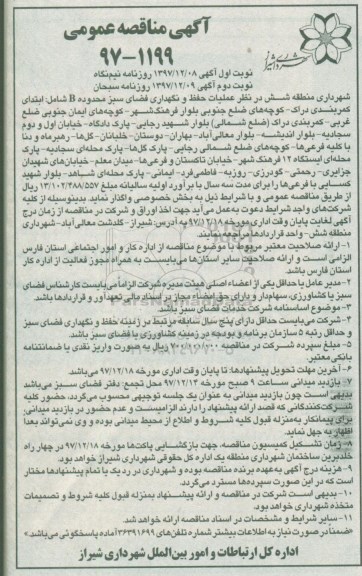 آگهی مناقصه عمومی
۹۷-۱۱۹۹
نوبت اول آگهی ۱۳۹۷/۱۲/۰۸ روزنامه نیم‌نگاه
نوبت دوم آگهی ۱۳۹۷/۱۲/۰۹ روزنامه سبحان
شهرداری منطقه شش در نظر عملیات حفظ و نگهداری فضای سبز محدوده B شامل: ابتدای
کمربندی دراک- کوچه‌های ضلع جنوبی بلوار فرهنگ‌شهر- کوچه‌های ایمان جنوبی ضلع
غربی- کمربندی دراک (ضلع شمالی) بلوار شهید رجایی- پارک دادگاه- خیابان اول و دوم
سجادیه- بلوار اندیشه- بلوار معالی‌آباد- بهاران- دوستان- خلبانان- گل‌ها- رهبر
با کلیه فرعی‌ها- کوچه‌های ضلع شمالی رجایی- پارک گل‌ها- پارک محله‌ای سجادیه- پارک
محله‌ای ایستگاه ۱۲ فرهنگ شهر- خیابان تاکستان و فرعی‌ها- میدان معلم- خیابان‌های شهیدان
جزایری- رحمتی- گودرزی- روزبه- فاطمی‌فرد- ایمانی- پارک محله‌ای شباهد- بلوار شهید
کسایی با فرعی‌ها را برای مدت سه سال با برآورد اولیه سالیانه مبلغ ۱۳/۱۰۲/۳۸۸/۵۵۷ ریال
از طریق مناقصه عمومی و با شرایط ذیل به بخش خصوصی واگذار نماید. بدینوسیله از کلیه
شرکت‌های واجد شرایط دعوت به عمل می‌آید جهت اخذ اوراق و شرکت در مناقصه از زمان درج
آگهی لغایت پایان وقت اداری مورخه ۹۷/۱۲/۱۸ به آدرس: شیراز- گلدشت معالی‌آباد- شهرداری
منطقه شش- واحد قراردادها مراجعه نمایند.
۱- ارائه صلاحیت معتبر مربوط با موضوع مناقصه از اداره کار و امور اجتماعی استان فارس
الزامی است و ارائه صلاحیت سایر استان‌ها می‌بایست به همراه مجوز فعالیت از اداره کار
استان فارس باشد.
۲- مدیر عامل یا حداقل یکی از اعضاء اصلی هیئت مدیره شرکت الزاماً می‌بایست کارشناس فضای
سبز یا کشاورزی، سهام‌دار و دارای حق امضاء مجاز در اسناد مالی و تعهدآور و قراردادها باشد.
۳- موضوع اساسنامه شرکت خدمات فضای سبز باشد.
۴- شرکت می‌بایست حداقل دارای پنج سال سابقه مرتبط در زمینه حفظ و نگهداری فضای سبز
و حداقل رتبه ۵ سازمان برنامه و بودجه در زمینه کشاورزی یا فضای سبز باشد.
۵- مبلغ سپرده شرکت در مناقصه ۷۰۰/۰۰۰/۰۰۰ ریال به صورت واریز نقدی یا ضمانتنامه
بانکی معتبر.
۶- آخرین مهلت تحویل پیشنهادها: تا پایان وقت اداری مورخه ۹۷/۱۲/۱۸ می‌باشد.
۷- بازدید میدانی ساعت ۹ صبح مورخه ۹۷/۱۲/۱۴ محل تجمع: دفتر فضای سبز می‌باشد
بدیهی است چون بازدید میدانی به عنوان یک جلسه توجیهی محسوب می‌گردد، حضور کلیه
شرکت‌کنندگانی که قصد ارائه پیشنهاد را دارند الزامیست و عدم حضور در بازدید میدانی،
برای پیمانکار به‌منزله قبول کلیه شروط و اطلاع از محیط میدانی بوده و وی نمی‌تواند بعداً
اظهار به جهل نماید.
۸- زمان تشکیل کمیسیون مناقصه، جهت بازگشایی پاکت‌ها مورخه ۹۷/۱۲/۱۸ در چهار راه
خلدبرین ساختمان شهرداری منطقه یک اداره کل حقوقی شهرداری شیراز خواهد بود.
۹- هزینه درج آگهی به‌عهده برنده مناقصه بوده و شهرداری در رد یک یا تمام پیشنهادها مختار
است که در این صورت سپرده‌ها مسترد می‌گردد.
۱۰- بدیهی است شرکت در مناقصه و ارائه پیشنهاد بمنزله قبول کلیه شروط و تصمیمات
متخذه شهرداری خواهد بود.
۱۱- سایر شرایط و مشخصات در اسناد مناقصه ارائه خواهد شد.
«ضمناً در صورت نیاز به اطلاعات بیشتر شماره تلفن‌های ۳۶۳۹۱۶۹۹ آماده پاسخگوئی می‌باشد»
اداره کل ارتباطات و امور بین‌الملل شهرداری شیراز